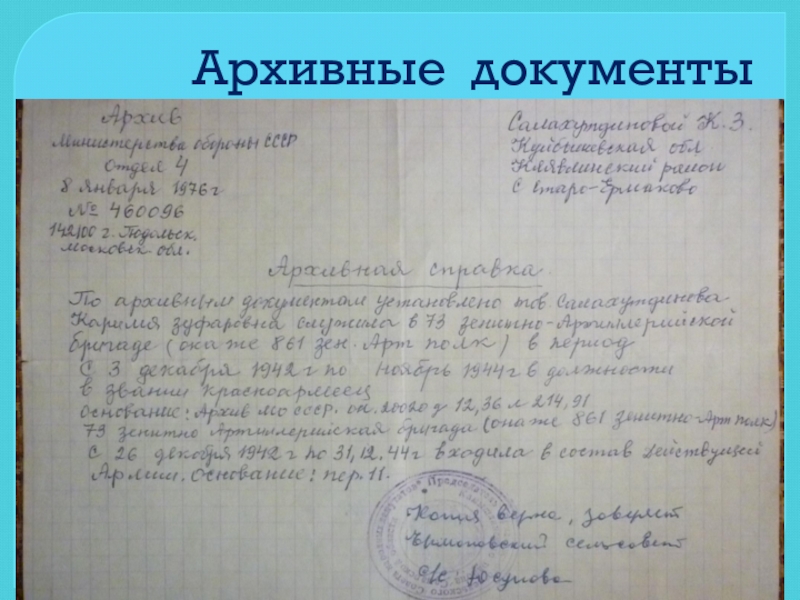 Архивные документы
Архив
Министерства обороны СССР
Отдел 4
8 января 1976 г
№ 460096
142100 г. Подольск,
Московск обл.
Салахутдиновой К. З.
Куйбышевская обл
Клявлинский район
с Старо-Ермаково
Архивная справка
По архивным документам установлено тов Салахутдинова
Карима Зуфаровна служила в 73 зенитно-Артиллерийской
бригаде (она же 861 зен. Арт полк) в период
С 3 декабря 1942 г по ноябрь 1944 г в должности
в звании красноармеец
Основание: Архив МО СССР. оп. 20020 д 12,36 л 214,91
73 зенитно Артиллерийская бригада (она же 861 зенитно-Арт полк)
С 26 декабря 1942 г по 31,12.44 г входила в состав действующей
Армии. Основание: пер. 11.
Копия верна, заверяет
Ермаковский сельсовет
Юсупова